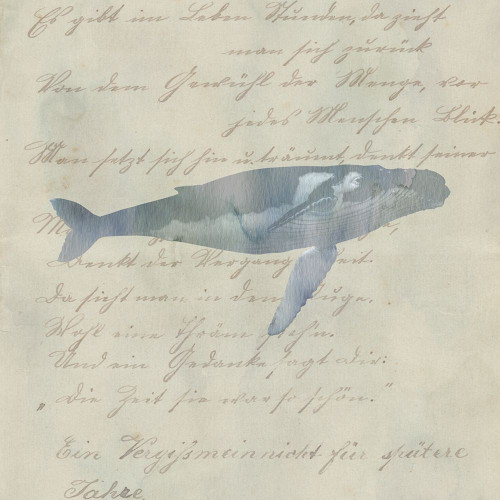 Es gibt im Leben Stunden, da zieht
man sich zurück
Von dem Gewühl der Menge, vor
jedes Menschen Blick.
Man setzt sich hin u. träumt, denkt seiner
Denkt der Vergangenheit
Da sieht man in dem Auge.
Wohl eine Thräne stehn.
Und ein Gedanke sagt Dir:
„Die Zeit sie war so schön."
Ein Vergißmeinnicht für spätere
Jahre.